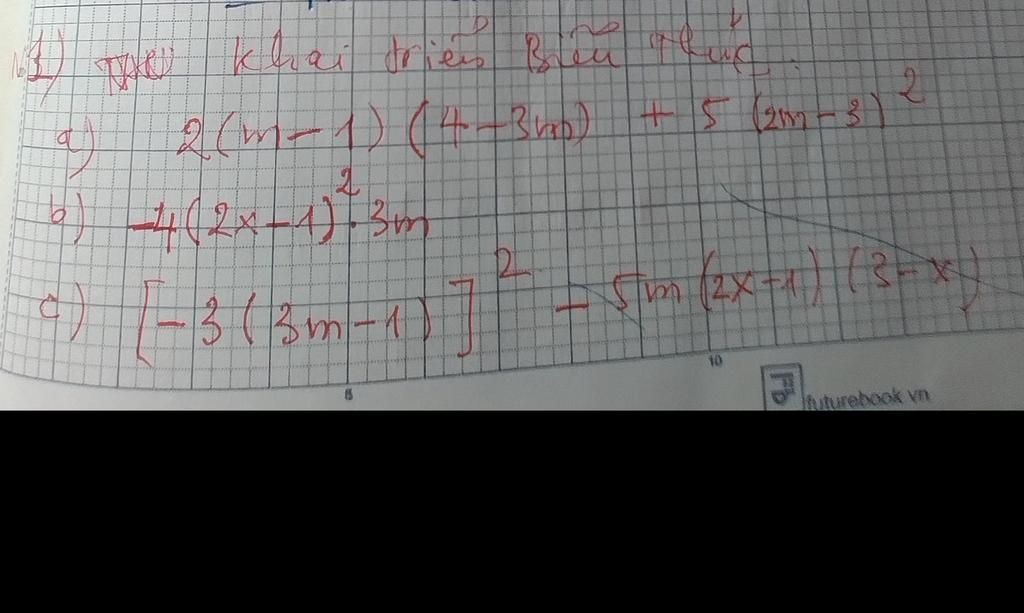 1) khai triển Biểu thức
a) 2(m-1)(4-3m) + 5(2m-3)²
b) -4(2x-1)².3m
c) [-3(3m-1)]² - 5m(2x+1)(3-x)
8 10
futurebook.vn